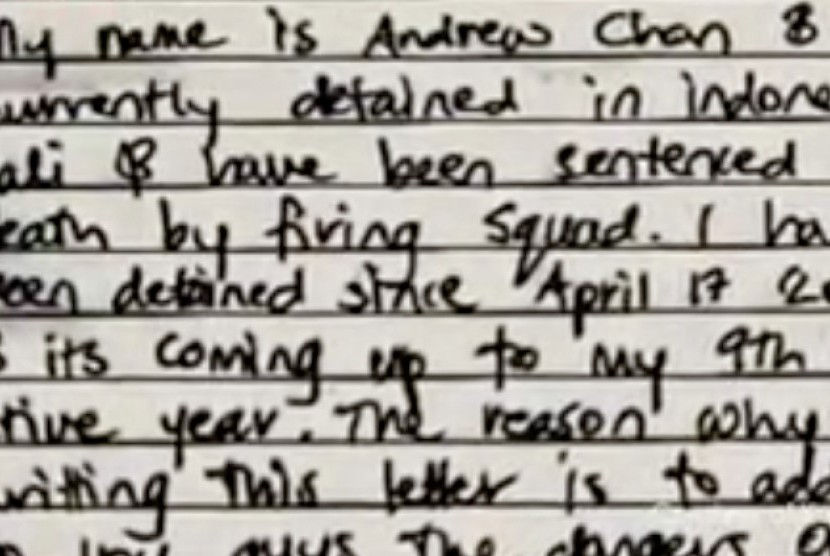 My name is Andrew Chan &
urrently detained in indone
ali & have been sentenced
eath by firing squad. I ha
een detained since April 17 20
& its coming up to my 9th
tive year. The reason why
writting This letter is to add
guys The dangers o